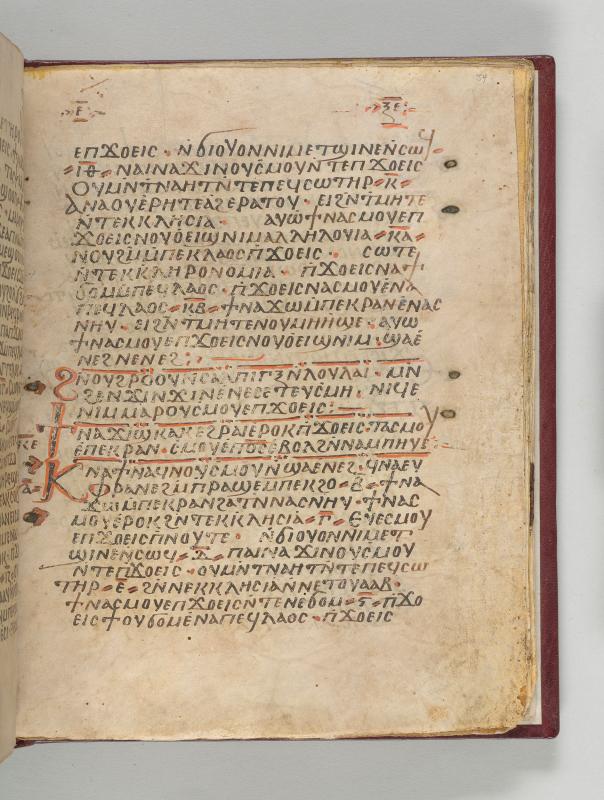 34
ⲉ̅ ⲝ̅ⲉ̅
ⲉⲡϫⲟⲉⲓⲥ · ⲛ̄ϭⲓⲟⲩⲟⲛⲛⲓⲙⲉⲧϣⲓⲛⲉⲛⲥⲱϥ
ⲓ̅ⲑ̅ · ⲛⲁⲓⲛⲁϫⲓⲛⲟⲩⲥⲙⲟⲩⲛ̄ⲧⲉⲡϫⲟⲉⲓⲥ
ⲟⲩⲙⲛ̄ⲧⲛⲁⲏⲧⲛ̄ⲧⲉⲡⲉϥⲥⲱⲧⲏⲣ · ⲕ̅
ⲁⲛⲁⲟⲩⲉⲣⲏⲧⲉⲁϩⲉⲣⲁⲧⲟⲩ · ϩⲓⲧⲙⲏⲧⲉ
ⲛ̄ⲧⲉⲕⲕⲗⲏⲥⲓⲁ · ⲁⲩⲱϯⲛⲁⲥⲙⲟⲩⲉⲡ
ϫⲟⲉⲓⲥⲛⲟⲩⲟⲉⲓϣⲛⲓⲙⲁⲗⲗⲏⲗⲟⲩⲓⲁ · ⲕ̅ⲁ̅
ⲛⲟⲩϩⲙ̄ⲙ̄ⲡⲉⲕⲗⲁⲟⲥⲡϫⲟⲉⲓⲥ · ⲥⲱⲧⲉ
ⲛ̄ⲧⲉⲕⲕⲗⲏⲣⲟⲛⲟⲙⲓⲁ · ⲡ̄ϫⲟⲉⲓⲥⲛⲁϯ
ϭⲟⲙⲙ̄ⲡⲉϥⲗⲁⲟⲥ · ⲡ̄ϫⲟⲉⲓⲥⲛⲁⲥⲙⲟⲩⲉⲛ
ⲡⲉϥⲗⲁⲟⲥ · ⲕ̅ⲃ̅ · ϯⲛⲁϫⲱⲙ̄ⲡⲉⲕⲣⲁⲛⲉⲛⲁⲥ
ⲛⲏⲩ · ϩⲓⲧⲙⲏⲧⲉⲛⲟⲩⲙⲏⲏϣⲉ · ⲁⲩⲱ
ϯⲛⲁⲥⲙⲟⲩⲉⲡϫⲟⲉⲓⲥⲛⲟⲩⲟⲉⲓϣⲛⲓⲙ · ϣⲁⲉ
ⲛⲉϩⲛⲉⲛⲉϩ :
ϩⲛⲟⲩϩⲣⲟⲟⲩⲛⲥⲁⲗⲡⲓⲅⲝⲏⲗⲟⲩⲗⲁⲓ · ⲙⲛ
ϩⲉⲛϫⲓⲛϫⲓⲛⲉⲛⲉⲥⲉⲧⲉⲩⲥⲙⲏ · ⲛⲓϥⲉ
ⲛⲓⲙⲙⲁⲣⲟⲩⲥⲙⲟⲩⲉⲡϫⲟⲉⲓⲥ :
ϯⲛⲁϫⲓϣⲕⲁⲕⲉϩⲣⲁⲓⲉⲣⲟⲕⲡ̄ϫⲟⲉⲓⲥ · ⲧⲁⲥⲙⲟⲩ
ⲉⲡⲉⲕⲣⲁⲛ · ⲥⲙⲟⲩⲉⲡⲟ̅ⲥ̅ⲉⲃⲟⲗϩⲛⲙⲡⲏⲩⲉ
ⲕⲛⲁϯⲛⲁϥⲛⲟⲩⲥⲙⲟⲩⲛϣⲁⲉⲛⲉϩ · ϥⲛⲁⲉⲩ
ⲫⲣⲁⲛⲉϩⲙ̄ⲡⲣⲁϣⲉⲙⲡⲉⲕϩⲟ · ⲃ̅ · ϯⲛⲁ
ϫⲱⲙ̄ⲡⲉⲕⲣⲁⲛϩⲁⲧⲛⲛⲁⲥⲛⲏⲩ · ϯⲛⲁⲥ
ⲙⲟⲩⲉⲣⲟⲕϩⲛⲧⲉⲕⲕⲗⲏⲥⲓⲁ · ⲅ̅ · ⲉⲩⲉⲥⲙⲟⲩ
ⲉⲡϫⲟⲉⲓⲥⲡⲛⲟⲩⲧⲉ · ⲛ̄ϭⲓⲟⲩⲟⲛⲛⲓⲙⲉⲧ
ϣⲓⲛⲉⲛⲥⲱϥ · ⲇ̅ · ⲡⲁⲓⲛⲁϫⲓⲛⲟⲩⲥⲙⲟⲩ
ⲛ̄ⲧⲉⲡϫⲟⲉⲓⲥ · ⲟⲩⲙⲛ̄ⲧⲛⲁⲏⲧⲛ̄ⲧⲉⲡⲉϥⲥⲱ
ⲧⲏⲣ · ⲉ̅ · ϩⲛⲛⲉⲕⲕⲗⲏⲥⲓⲁⲛⲛⲉⲧⲟⲩⲁⲁⲃ ·
ϯⲛⲁⲥⲙⲟⲩⲉⲡϫⲟⲉⲓⲥⲛ̄ⲧⲉⲛⲉϭⲟⲙ · ⲋ̅ · ⲡ̄ϫⲟ
ⲉⲓⲥϯⲟⲩϭⲟⲙⲉⲛⲁⲡⲉϥⲗⲁⲟⲥ · ⲡ̄ϫⲟⲉⲓⲥ